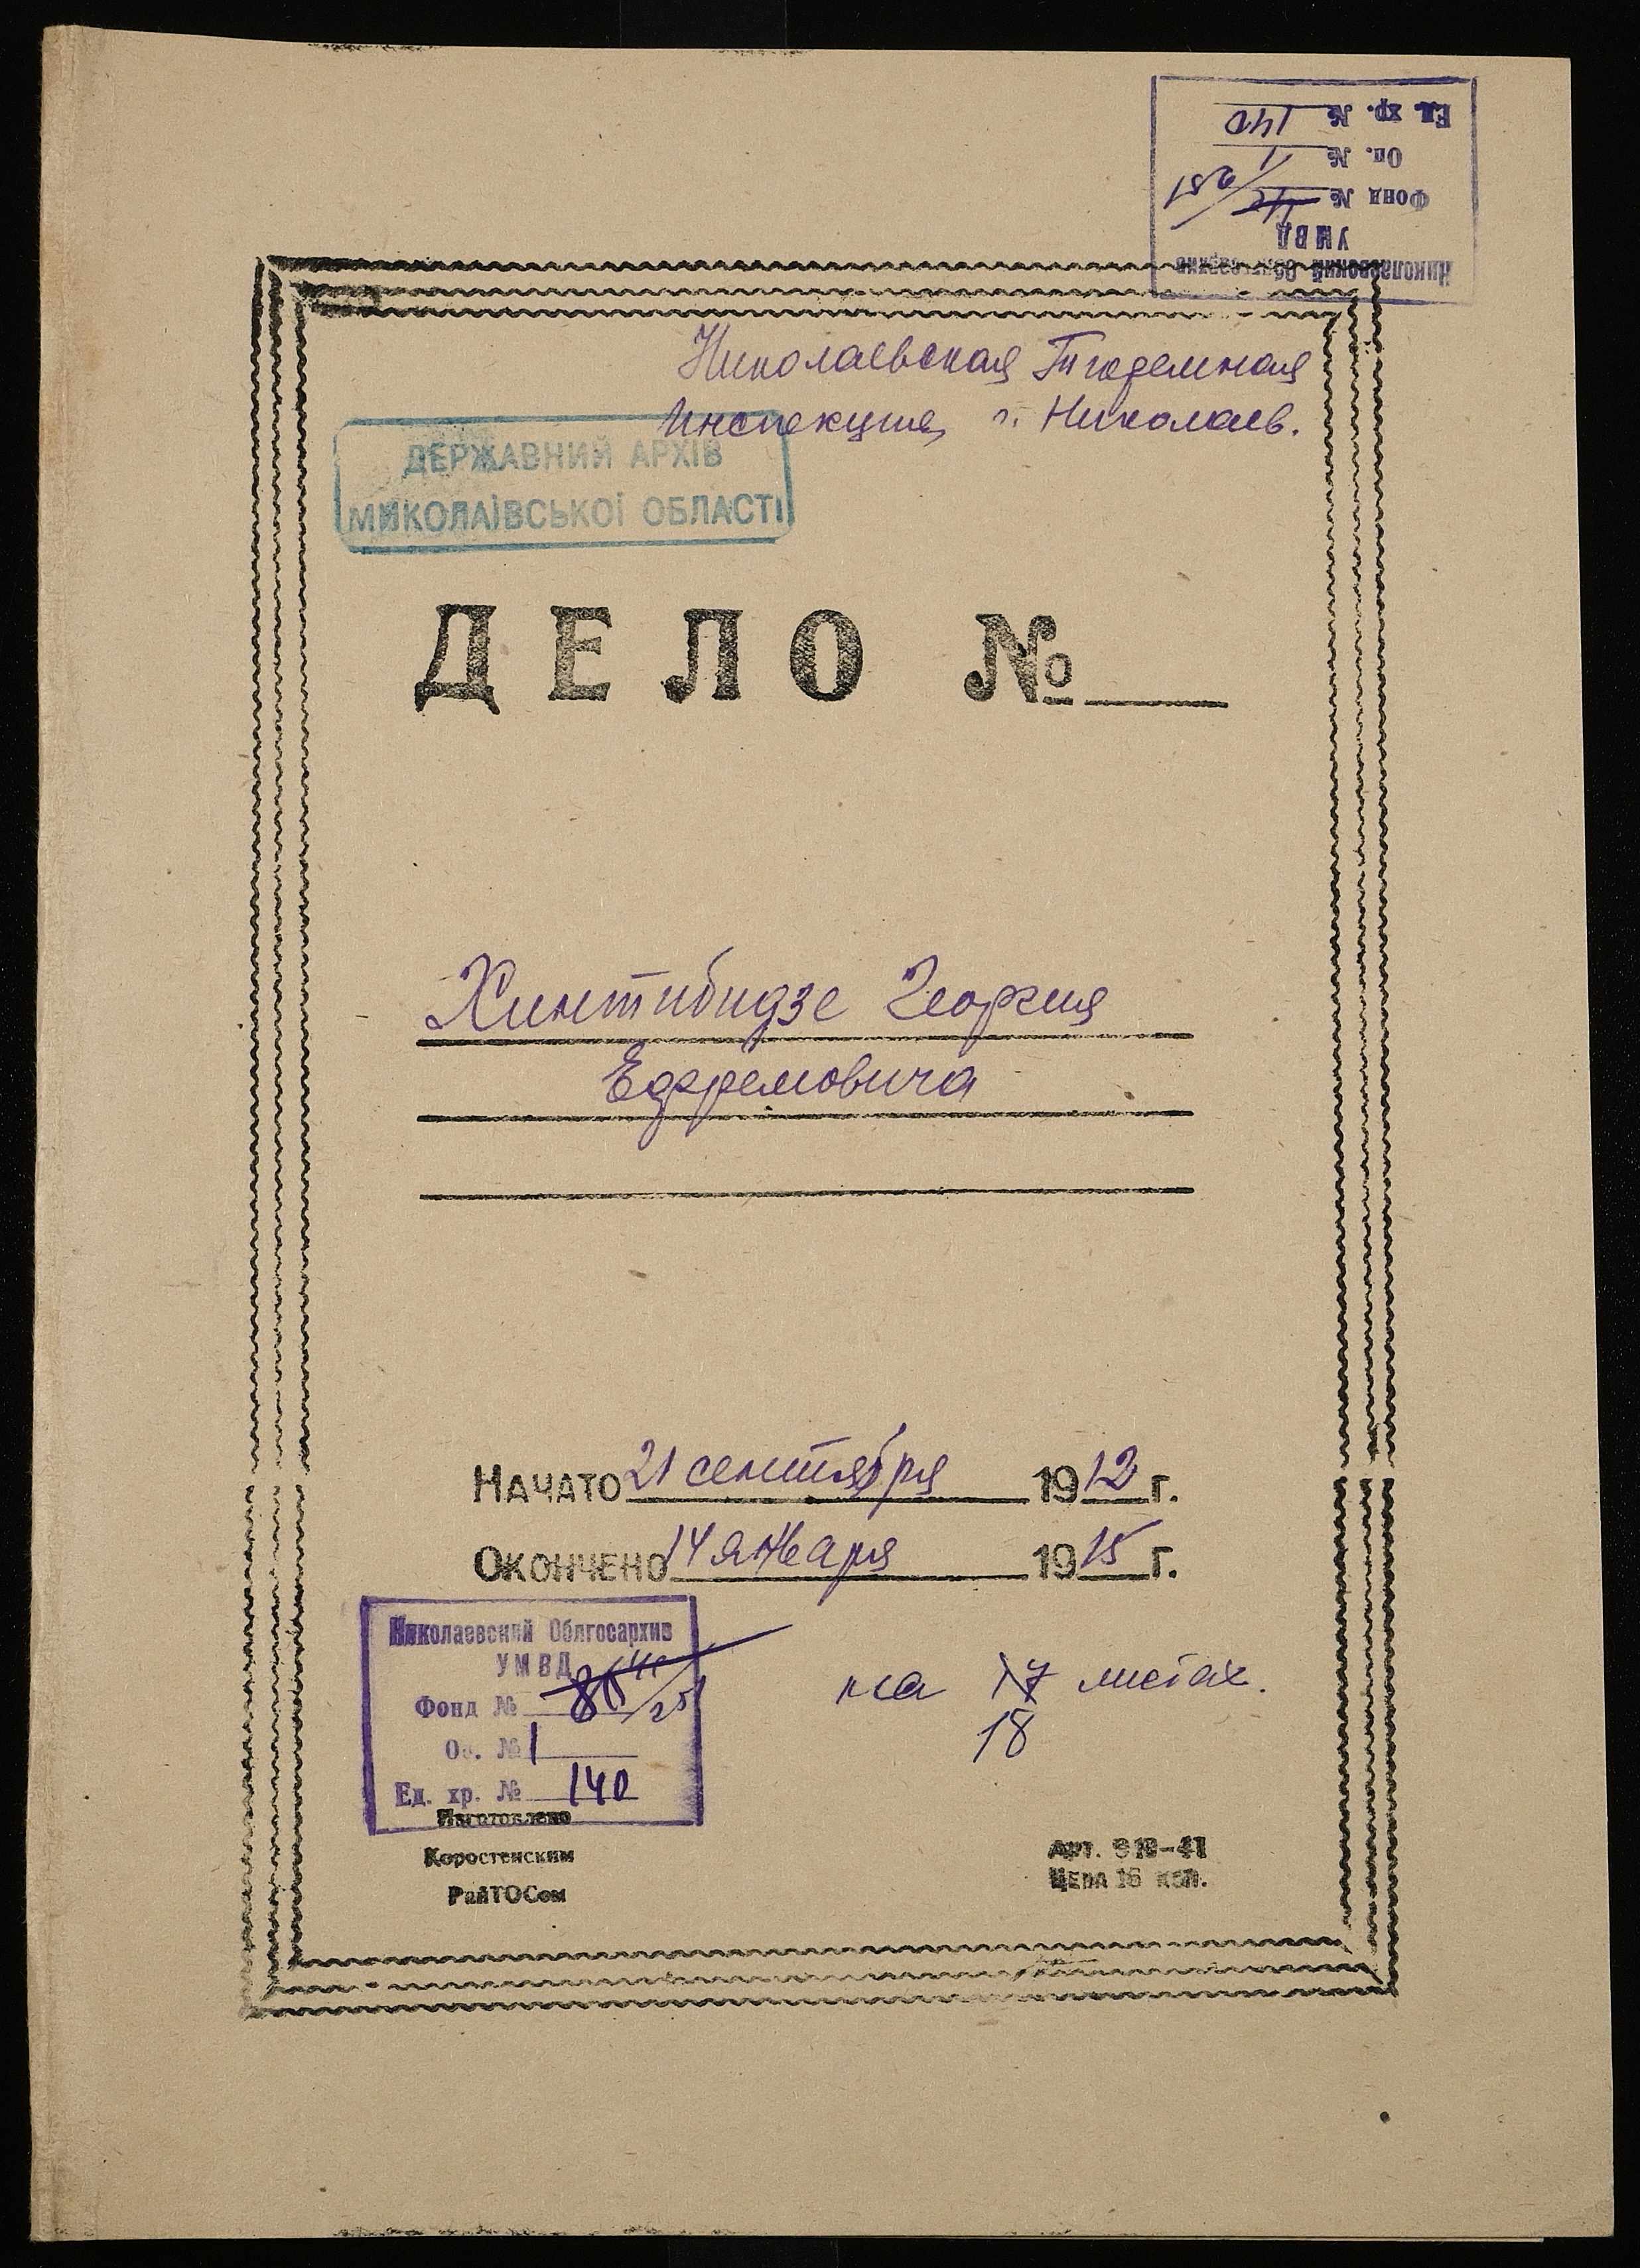 Николаевский Облгосархив
УМВД
Фонд № 42/251
Оп. № 1
Ед. хр. № 140
Николаевская Тюремная
Инспекция г. Николаев.
ДЕРЖАВНИЙ АРХІВ
МИКОЛАЇВСЬКОЇ ОБЛАСТІ
ДЕЛО №
Хинтибидзе Георгия
Ефремовича
НАЧАТО 21 сентября 1912 г.
ОКОНЧЕНО 14 января 1915 г.
Николаевский Облгосархив
УМВД
Фонд № 251
Оп. № 1
Ед. хр. № 140
на 17 листах.
18
Изготовлено
Коростенским
РайТОСом
Арт. 318-41
Цена 16 коп.